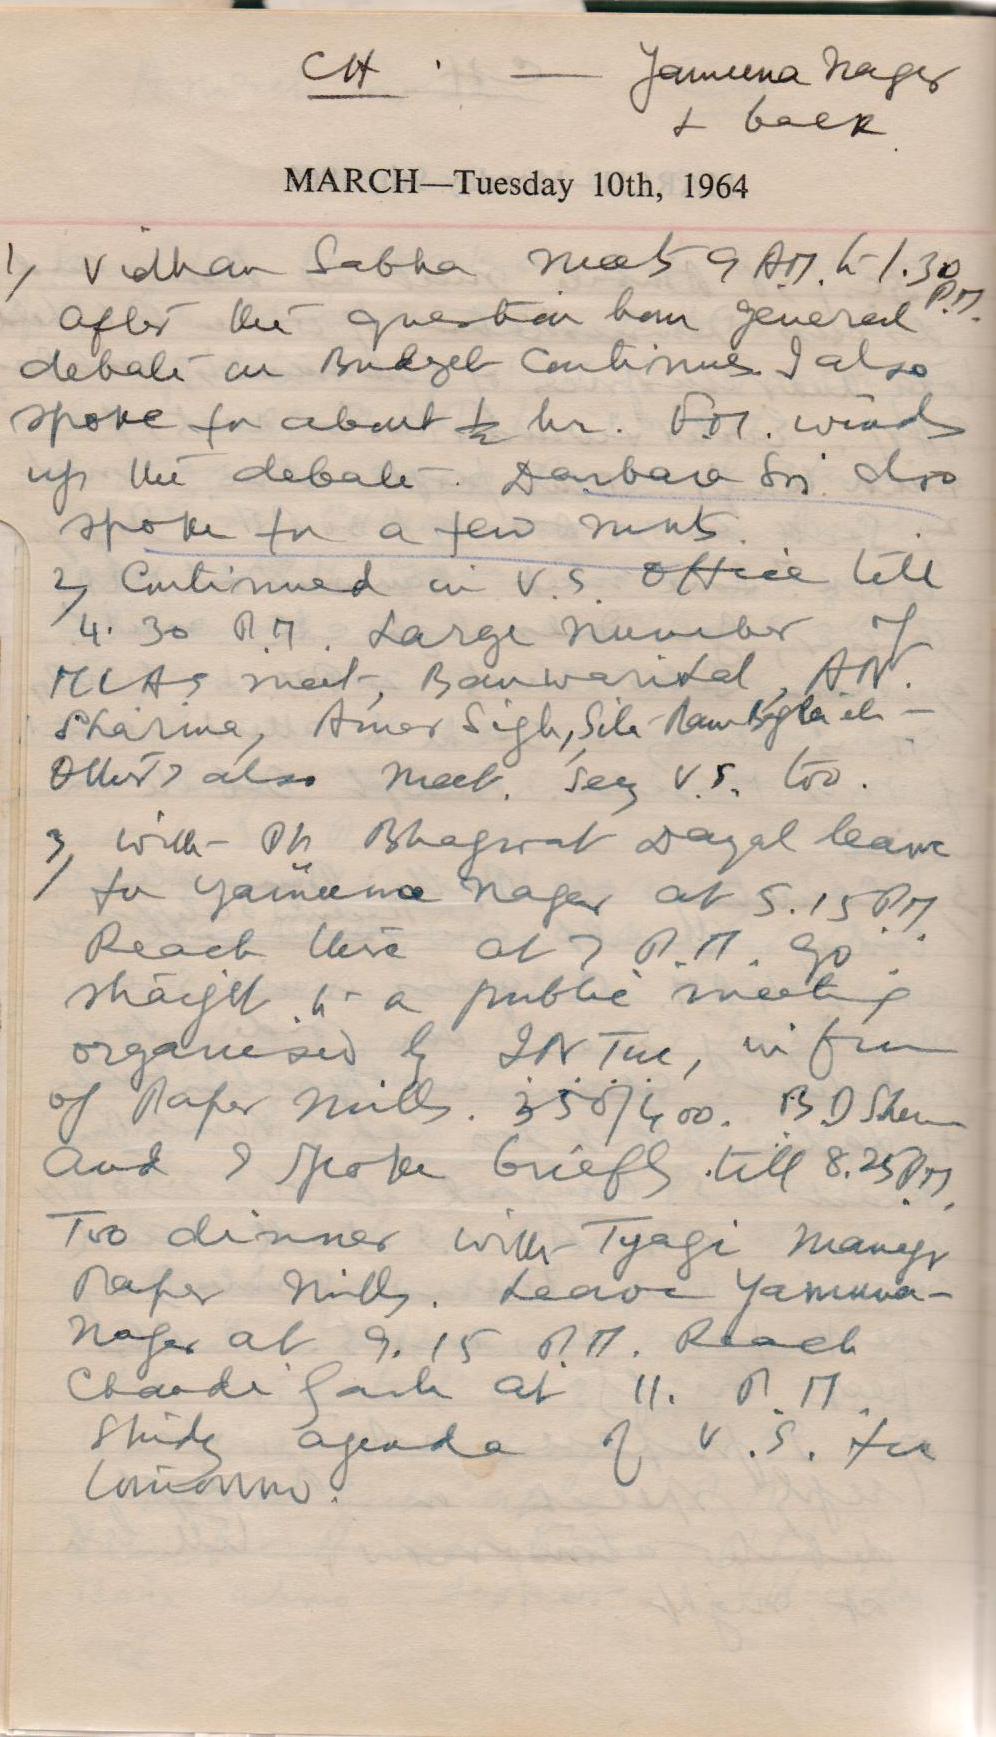 CH. — Yamuna Nager
& back
MARCH—Tuesday 10th, 1964
1) Vidhan Sabha meets 9 A.M. to 1.30 P.M.
After the question hour general
debate on Budget continues. I also
spoke for about ½ hr. winds
up the debate. Darbara also
spoke for a few mnts.
2) Continued in V.S. Office till
4.30 P.M. Large number of
MLAs meet, Banwarilal, A.N.
Sharma, Amar Sigh, Sita Ram Bagla etc –
Others also meet. Secy V.S. too.
3) With Pt Bhagwat Dayal leave
for Yamuna Nager at 5.15 P.M.
Reach there at 7 P.M. Go
straight to a public meeting
organised by INTUC, in front
of Paper Mills. 350/400. B.D Sharma
and I spoke briefly till 8.25 P.M.
Too dinner with Tyagi Manager
Paper Mills. Leave Yamuna-
Nager at 9.15 P.M. Reach
Chandigarh at 11. P.M.
Study agenda of V.S. for
tomorrow.